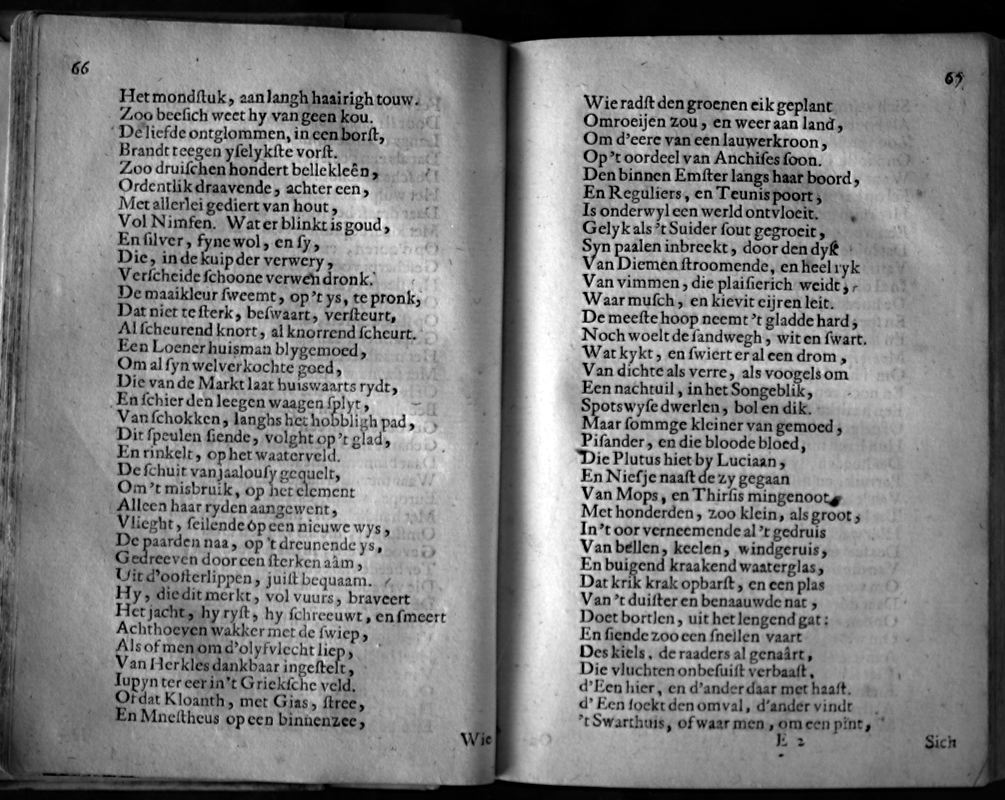 66
Het mondſtuk, aan langh haairigh touw.
Zoo beeſich weet hy van geen kou.
De liefde ontglommen, in een borſt,
Brandt teegen yſelykſte vorſt.
Zoo druiſchen hondert belleklеên,
Ordentlik draavende, achter een,
Met allerlei gediert van hout,
Vol Nimfen. Wat er blinkt is goud,
En ſilver, fyne wol, en ſy,
Die, in de kuip der verwery,
Verſcheide ſchoone verwen dronk.
De maaikleur ſweemt, op 't ys, te pronk,
Dat niet te ſterk, beſwaart, verſteurt,
Al ſcheurend knort, al knorrend ſcheurt.
Een Loener huisman blygemoed,
Om al ſyn welverkochte goed,
Die van de Markt laat huiswaarts rydt,
En ſchier den leegen waagen ſplyt,
Van ſchokken, langhs het hobbligh pad,
Dit ſpeulen ſiende, volght op 't glad,
En rinkelt, op het waaterveld.
De ſchuit van jaalouſy gequelt,
Om 't misbruik, op het element
Alleen haar ryden aangewent,
Vlieght, ſeilende op een nieuwe wys,
De paarden naa, op 't dreunende ys,
Gedreeven door een ſterken aâm,
Uit d'ooſterlippen, juiſt bequaam.
Hy, die dit merkt, vol vuurs, braveert
Het jacht, hy ryſt, hy ſchreeuwt, en ſmeert
Achthoeven wakker met de ſwiep,
Als of men om d'olyfvlecht liep,
Van Herkles dankbaar ingeſtelt,
Iupyn ter eer in 't Griekſche veld.
Of dat Kloanth, met Gias, ſtree,
En Mneſtheus op een binnenzee,
Wie
65
Wie radſt den groenen eik geplant
Omroeijen zou, en weer aan land,
Om d'eere van een lauwerkroon,
Op 't oordeel van Anchiſes ſoon.
Den binnen Emſter langs haar boord,
En Reguliers, en Teunis poort,
Is onderwyl een werld ontvloeit.
Gelyk als 't Suider ſout gegroeit,
Syn paalen inbreekt, door den dyk
Van Diemen ſtroomende, en heel ryk
Van vimmen, die plaiſierich weidt,
Waar muſch, en kievit eijren leit.
De meeſte hoop neemt 't gladde hard,
Noch woelt de ſandwegh, wit en ſwart.
Wat kykt, en ſwiert er al een drom,
Van dichte als verre, als voogels om
Een nachtuil, in het Songeblik,
Spotswyſe dwerlen, bol en dik.
Maar ſommge kleiner van gemoed,
Piſander, en die bloode bloed,
Die Plutus hiet by Luciaan,
En Nieſje naaſt de zy gegaan
Van Mops, en Thirſis mingenoot,
Met honderden, zoo klein, als groot,
In 't oor verneemende al 't gedruis
Van bellen, keelen, windgeruis,
En buigend kraakend waaterglas,
Dat krik krak opbarſt, en een plas
Van 't duiſter en benaauwde nat,
Doet bortlen, uit het lengend gat:
En ſiende zoo een ſnellen vaart
Des kiels, de raaders al genaârt,
Die vluchten onbeſuiſt verbaaſt,
d'Een hier, en d'ander daar met haaſt.
d'Een ſoekt den omval, d'ander vindt
't Swarthuis, of waar men, om een pint,
E 2
Sich